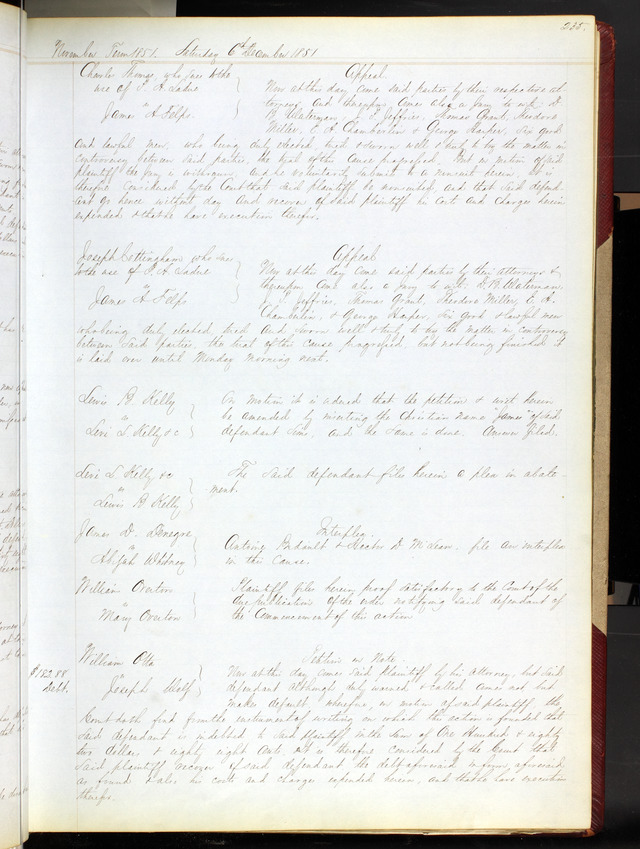 235.
November Term 1851. Saturday 6th December 1851
Charles Thomas, who sues to the Appeal
use of T. A. Ladue Now at this day come said parties by their respective at-
torneys and thereupon comes also a jury to wit, D.
James A Felps. B. Waterman, J. J. Jeffries, Thomas Grant, Theodore
Miller, E A. Chamberlin & George Harper, six good
and lawful men, who being duly elected, tried & sworn well & truly to try the matter in
controversy between said parties, the trial of this cause progressed. But on motion of said
plaintiff the jury is withdrawn and he voluntarily submits to a nonsuit herein. It is
therefore considered by the Court that said plaintiff be nonsuited, and that said defend-
ant go hence without day and recover of said plaintiff his costs and charges herein
expended & that he have execution therefor.
Joseph Cottingham who sues Appeal
to the use of T. A. Ladue Now at this day come said parties by their attorneys &
vs thereupon comes also a jury to wit: D. B. Waterman,
James A Felps J. J. Jeffries, Thomas Grant, Theodore Miller, E. A.
Chamberlin, & George Harper, six good & lawful men
who being duly elected, tried and sworn well & truly to try the matter in controversy
between said parties, the trial of this cause progressed, but not being finished it
is laid over until Monday morning next.
Lewis B Kelly On motion it is ordered that the petition & writ herein
vs be amended by inserting the christian name "James" of said
Levi L Kelly & c defendant Sims, and the same is done. Answer filed.
Levi L Kelly & c The said defendant files herein a plea in abate-
vs ment.
Lewis B Kelly
James D. Denegre Interplea.
vs Antoine & Hector D McLean. file an interplea
Abijah Whitney in this cause.
William Overton Plaintiff files herein proof satisfactory to the Court of the
vs due publication of the order notifying said defendant of
Mary Overton the commencement of this action
William Otto Petition in Note.
$182.88 vs Now at this day comes said plaintiff by his attorney, but said
Debt. Joseph Wolf defendant although duly warned & called comes not but
makes default, wherefore, on motion of said plaintiff, the
Court doth find from the instrument of writing on which this action is founded that
said defendant is indebted to said plaintiff in the sum of One Hundred & eighty
two dollars, & eighty eight cents. It is therefore considered by the Court that
said plaintiff recover of said defendant the debt aforesaid in form aforesaid
as found & also his costs and charges expended herein, and that he have execution
therefor.